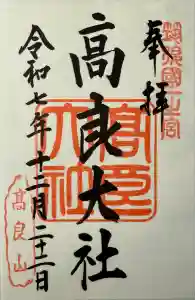 奉拝
筑後國一之宮
高良大社
高良大社
令和七年十二月二十二日
高良山